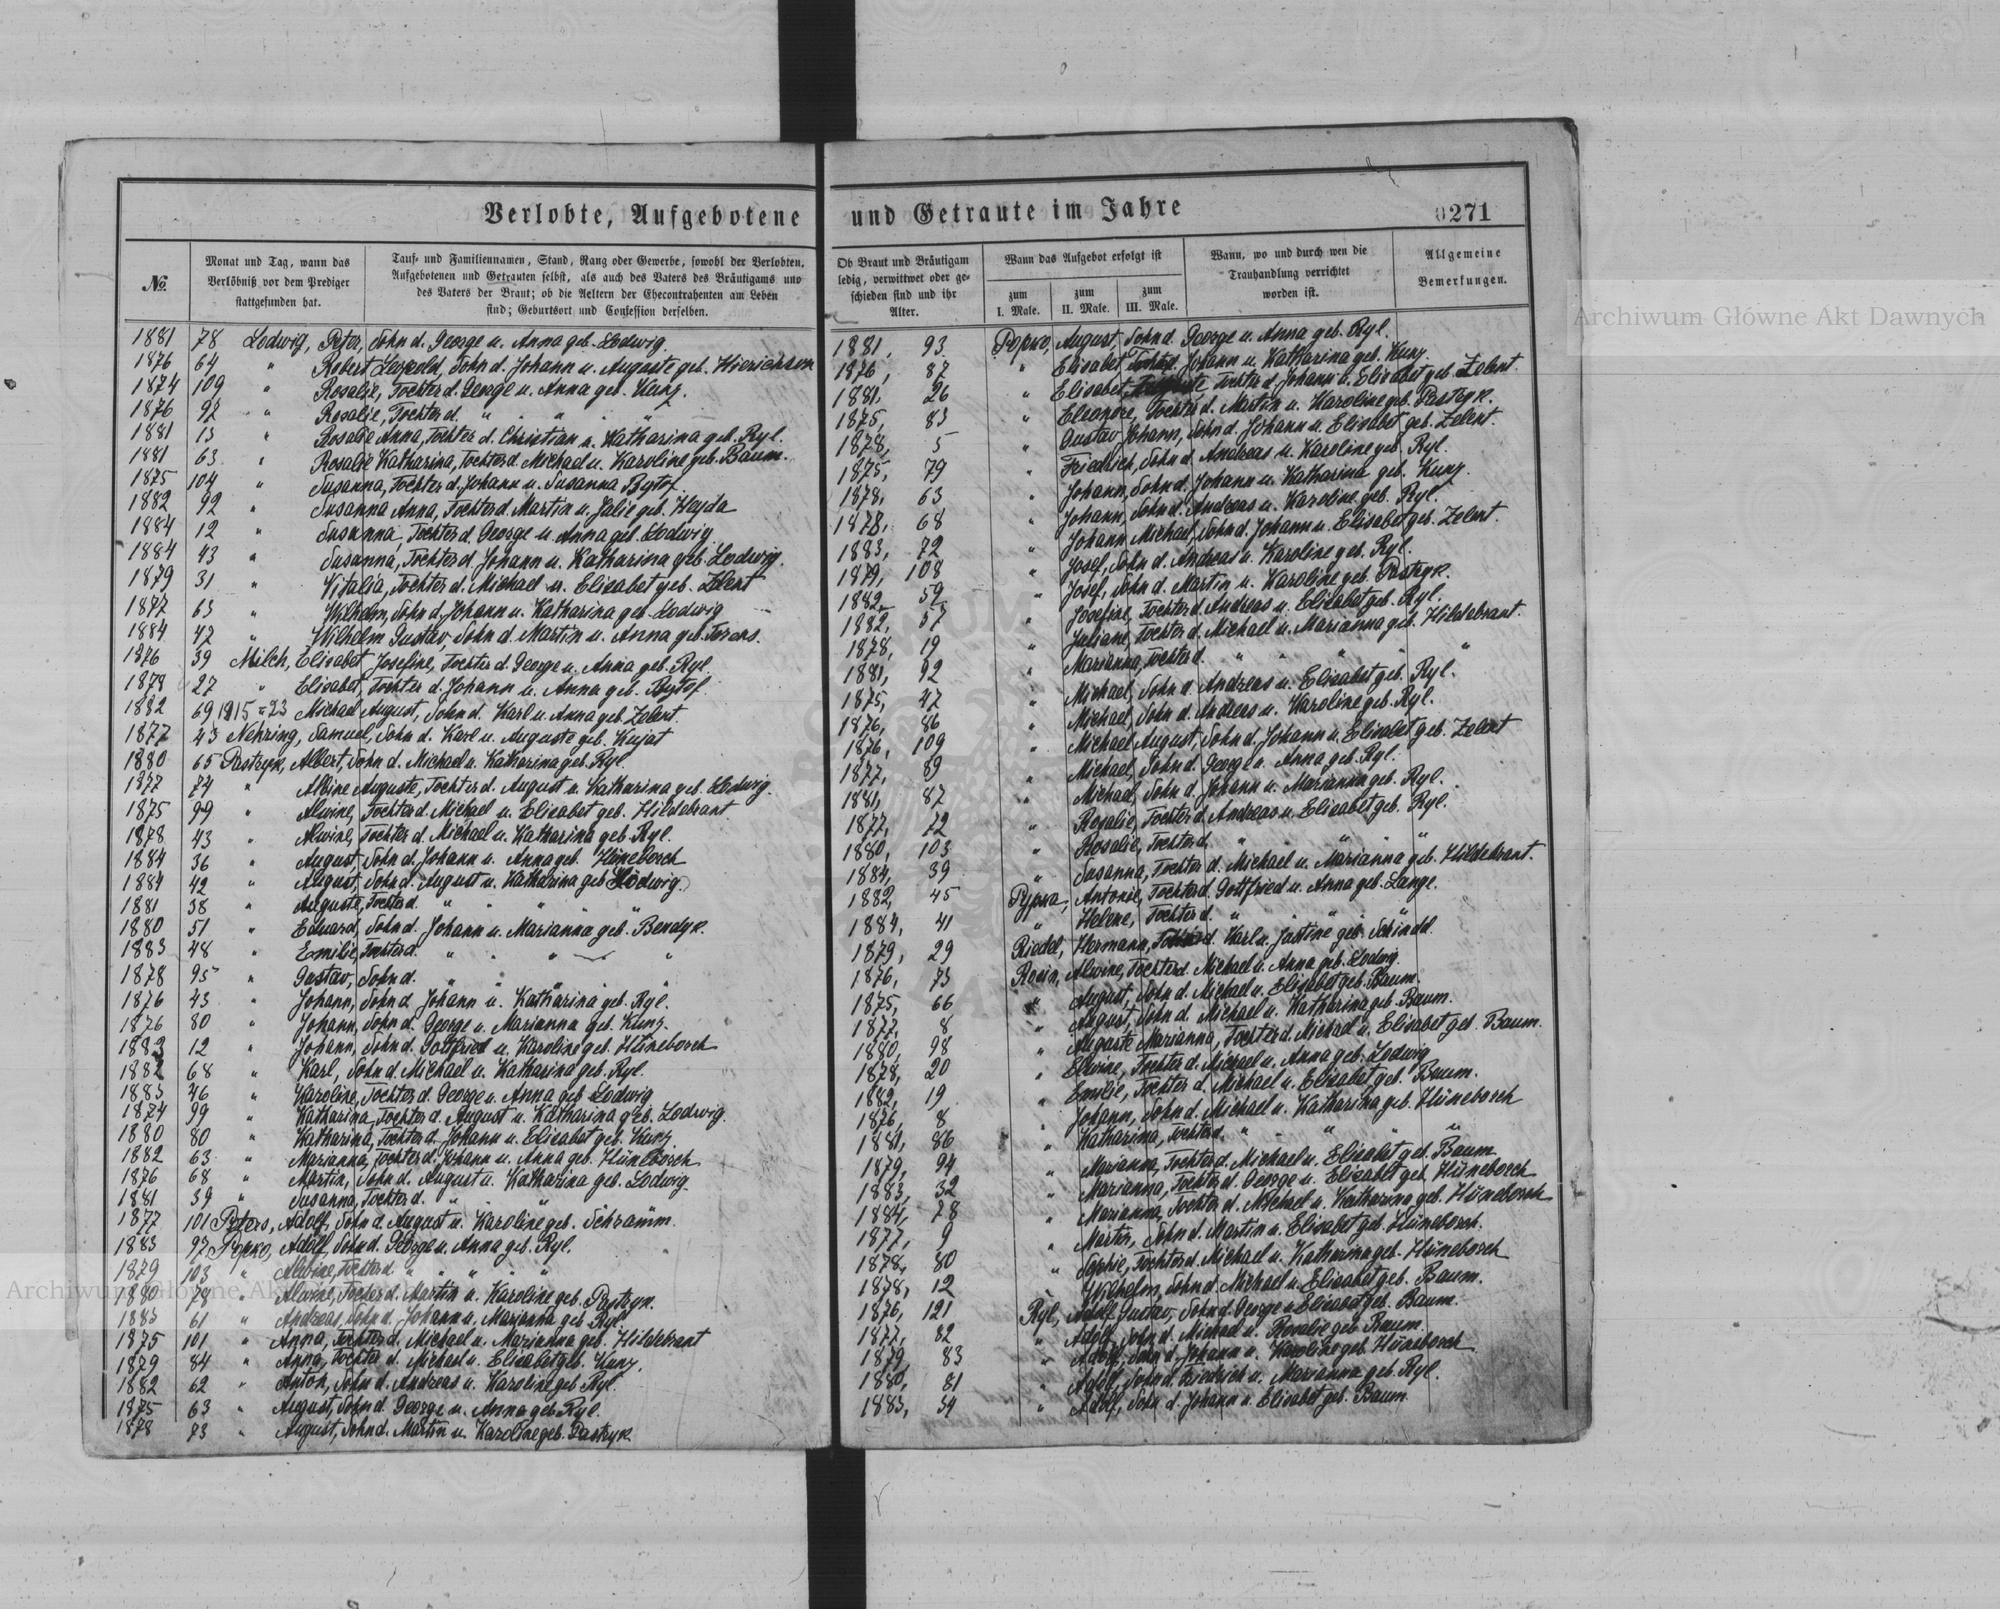 Verlobte, Aufgebotene und Getraute im Jahre
0271
№
Monat und Tag, wann das
Verlöbniß vor dem Prediger
stattgefunden hat.
Tauf- und Familiennamen, Stand, Rang oder Gewerbe, sowohl der Verlobten,
Aufgebotenen und Getrauten selbst, als auch des Vaters des Bräutigams und
des Vaters der Braut; ob die Aeltern der Ehecontrahenten am Leben
sind; Geburtsort und Confession derselben.
1881 78 Lodwig, Peter, Sohn d. George u. Anna geb. Lodwig
1876 64 " Robert Leopold, Sohn d. Johann u. Auguste geb. Hierichson
1874 109 " Rosalie, Tochter d. George u. Anna geb. Kunz.
1876 92 " Rosalie, Tochter d. " " "
1881 13 " Rosalie Anna, Tochter d. Christian u. Katharina geb. Ryl.
1881 63 " Rosalie Katharina, Tochter d. Michael u. Karoline geb. Baum.
1875 104 " Susanna, Tochter d. Johann u. Susanna Bytof
1882 92 " Susanna Anna, Tochter d. Martin u. Julie geb. Heyda
1884 12 " Susanna, Tochter d. George u. Anna geb. Lodwig
1884 43 " Susanna, Tochter d. Johann u. Katharina geb. Lodwig.
1879 31 " Vitalia, Tochter d. Michael u. Elisabet geb. Zelent
1877 63 " Wilhelm, Sohn d. Johann u. Katharina geb. Lodwig
1884 42 " Wilhelm Gustav, Sohn d. Martin u. Anna geb.
1876 39 Milch, Elisabet Josefine, Tochter d. George u. Anna geb. Ryl
1878 27 " Elisabet, Tochter d. Johann u. Anna geb. Bytof
1882 69 1915=23 Michael August, Sohn d. Karl u. Anna geb. Zelent.
1877 43 Nehring, Samuel, Sohn d. Karl u. Auguste geb. Kujat
1880 65 Pastryk, Albert, Sohn d. Michael u. Katharina geb. Ryl
1877 74 " Albine Auguste, Tochter d. August u. Katharina geb. Lodwig.
1875 99 " Alwine, Tochter d. Michael u. Elisabet geb. Hildebrant
1878 43 " Alwine, Tochter d. Michael u. Katharina geb. Ryl.
1884 36 " August, Sohn d. Johann u. Anna geb. Hünebosch
1884 42 " August, Sohn d. August u. Katharina geb. Lodwig.
1881 38 " Auguste, Tochter d. " " " "
1880 51 " Eduard, Sohn d. Johann u. Marianna geb. Bendyk.
1883 48 " Emilie, Tochter d. " " " "
1878 95 " Gustav, Sohn d. " " " "
1876 43 " Johann, Sohn d. Johann u. Katharina geb. Ryl.
1876 80 " Johann, Sohn d. George u. Marianna geb. Kunz.
1883 12 " Johann, Sohn d. Gottfried u. Karoline geb. Hünebosch
1882 68 " Karl, Sohn d. Michael u. Katharina geb. Ryl.
1883 46 " Karoline, Tochter d. George u. Anna geb. Lodwig
1874 99 " Katharina, Tochter d. August u. Katharina geb. Lodwig.
1880 80 " Katharina, Tochter d. Johann u. Elisabet geb. Kunz.
1882 63 " Marianna, Tochter d. Johann u. Anna geb. Hünebosch
1876 68 " Martin, Sohn d. August u. Katharina geb. Lodwig.
1881 39 " Susanna, Tochter d. " " "
1877 101 Peters, Adolf, Sohn d. August u. Karoline geb. Schramm.
1883 97 Popko, Adolf, Sohn d. George u. Anna geb. Ryl.
1879 103 " Alwine, Tochter d. " " " "
1880 78 " Alwine, Tochter d. Martin u. Karoline geb. Pastryk.
1883 61 " Andreas, Sohn d. Johann u. Marianna geb. Ryl
1875 101 " Anna, Tochter d. Michael u. Marianna geb. Hildebrant
1879 84 " Anna, Tochter d. Michael u. Elisabet geb. Kunz.
1882 62 " Anton, Sohn d. Andreas u. Karoline geb. Ryl.
1875 63 " August, Sohn d. George u. Anna geb. Ryl.
1878 73 " August, Sohn d. Martin u. Karoline geb. Pastryk.
Ob Braut und Bräutigam
ledig, verwittwet oder ge-
schieden sind und ihr
Alter.
Wann das Aufgebot erfolgt ist
zum I. Male.
zum II. Male.
zum III. Male.
Wann, wo und durch wen die
Trauhandlung verrichtet
worden ist.
Allgemeine
Bemerkungen.
1881, 93 Popko, August, Sohn d. George u. Anna geb. Ryl.
1876, 87 " Elisabet, Tochter d. Johann u. Katharina geb. Kunz.
1881, 26 " Elisabet, Tochter d. Johann u. Elisabet geb. Zelent.
1875, 83 " Eleonore, Tochter d. Martin u. Karoline geb. Pastryk.
1878, 5 " Gustav Johann, Sohn d. Johann u. Elisabet geb. Zelent.
1875, 79 " Friedrich, Sohn d. Andreas u. Karoline geb. Ryl.
1878, 63 " Johann, Sohn d. Johann u. Katharina geb. Kunz.
1878, 68 " Johann, Sohn d. Andreas u. Karoline geb. Ryl.
1883, 72 " Johann Michael, Sohn d. Johann u. Elisabet geb. Zelent.
1879, 108 " Josef, Sohn d. Andreas u. Karoline geb. Ryl.
1882, 59 " Josef, Sohn d. Martin u. Karoline geb. Pastryk.
1882, 57 " Josefine, Tochter d. Andreas u. Elisabet geb. Ryl.
1878, 19 " Juliane, Tochter d. Michael u. Marianna geb. Hildebrant.
1881, 92 " Marianna, Tochter d. " " " " "
1875, 47 " Michael, Sohn d. Andreas u. Elisabet geb. Ryl.
1876, 86 " Michael, Sohn d. Andreas u. Karoline geb. Ryl.
1876, 109 " Michael August, Sohn d. Johann u. Elisabet geb. Zelent
1877, 89 " Michael, Sohn d. George u. Anna geb. Ryl.
1881, 87 " Michael, Sohn d. Johann u. Marianna geb. Ryl.
1877, 72 " Rosalie, Tochter d. Andreas u. Elisabet geb. Ryl.
1880, 103 " Rosalie, Tochter d. " " " " "
1884, 39 " Susanna, Tochter d. Michael u. Marianna geb. Hildebrant.
1882, 45 Pypka, Antonie, Tochter d. Gottfried u. Anna geb. Lange.
1884, 41 " Helene, Tochter d. " " " "
1879, 29 Riedel, Hermann, Sohn d. Karl u. Justine geb. Schindel
1876, 73 Rosin, Alwine, Tochter d. Michael u. Anna geb. Lodwig.
1875, 66 " August, Sohn d. Michael u. Elisabet geb. Baum.
1877, 8 " August, Sohn d. Michael u. Katharina geb. Baum.
1880, 98 " Auguste Marianna, Tochter d. Michael u. Elisabet geb. Baum.
1878, 20 " Elwine, Tochter d. Michael u. Anna geb. Lodwig
1882, 19 " Emilie, Tochter d. Michael u. Elisabet geb. Baum.
1876, 8 " Johann, Sohn d. Michael u. Katharina geb. Hünebosch
1881, 86 " Katharina, Tochter d. " " " "
1879, 94 " Marianna, Tochter d. Michael u. Elisabet geb. Baum
1883, 32 " Marianna, Tochter d. George u. Elisabet geb. Hünebosch
1884, 78 " Marianna, Tochter d. Michael u. Katharina geb. Hünebosch
1877, 9 " Martin, Sohn d. Martin u. Elisabet geb. Hünebosch.
1878, 80 " Sophie, Tochter d. Michael u. Katharina geb. Hünebosch
1878, 12 " Wilhelm, Sohn d. Michael u. Elisabet geb. Baum.
1876, 121 Ryl, Adolf Gustav, Sohn d. George u. Elisabet geb. Baum.
1877, 82 " Adolf, Sohn d. Michael u. Rosalie geb. Baum.
1879, 83 " Adolf, Sohn d. Johann u. Karoline geb. Hünebosch
1880, 81 " Adolf, Sohn d. Friedrich u. Marianna geb. Ryl.
1883, 34 " Adolf, Sohn d. Johann u. Elisabet geb. Baum.
Archiwum Główne Akt Dawnych
Archiwum Główne Akt